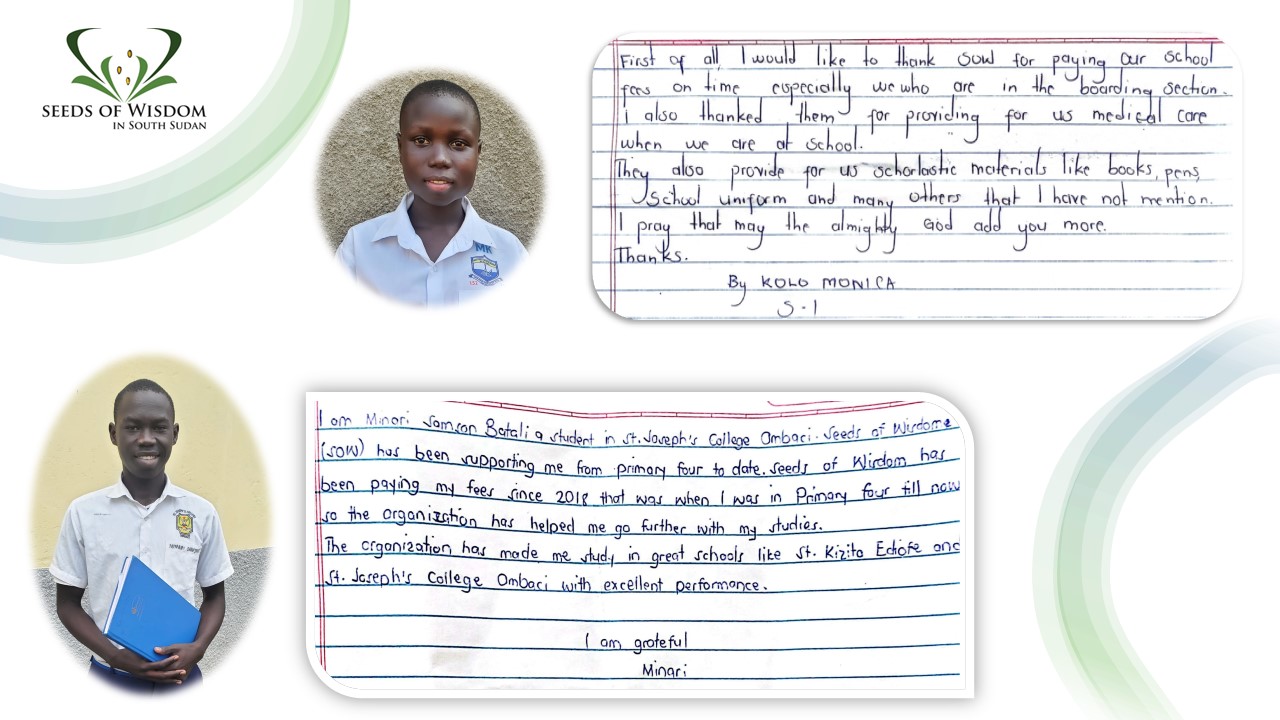 SEEDS OF WISDOM
IN SOUTH SUDAN
First of all, I would like to thank SOW for paying our school
fees on time especially we who are in the boarding section.
I also thanked them for providing for us medical care
when we are at school.
They also provide for us schorlastic materials like books, pens,
School uniform and many others that I have not mention.
I pray that may the almighty God add you more.
Thanks.
By KOLO MONICA
S.1
MK
I am Minari Samson Batali a student in St. Joseph's College Ombaci. Seeds of Wisdome
(SOW) has been supporting me from primary four to date. Seeds of Wisdom has
been paying my fees since 2018 that was when I was in Primary four till now
so the organization has helped me go further with my studies.
The organization has made me study in great schools like St. Kizito Ediofe and
St. Joseph's College Ombaci with excellent performance.
I am grateful
Minari